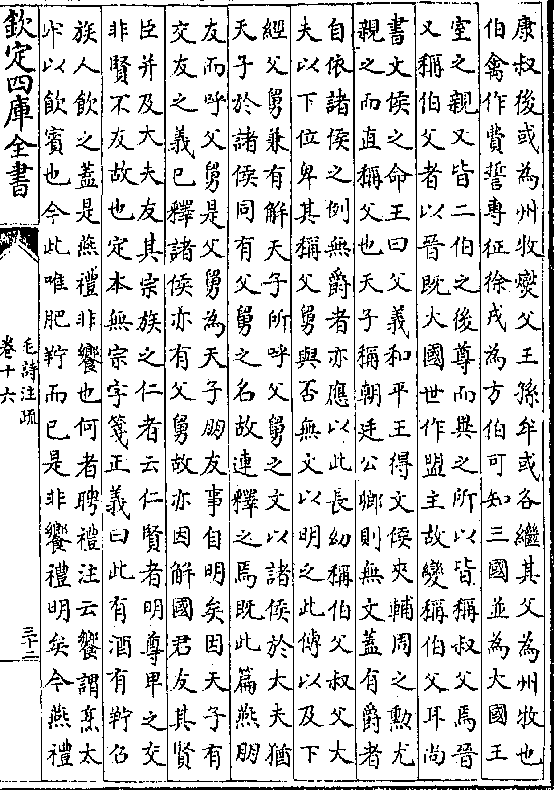 康叔後或為州牧燮父王孫牟或各繼其父為州牧也
伯禽作費誓專征徐戎為方伯可知三國並為大國王
室之親又皆二伯之後尊而異之所以皆稱叔父焉晉
又稱伯父者以晉既大國世作盟主故變稱伯父耳尚
書文侯之命王曰父義和平王得文侯夾輔周之勲尤
親之而直稱父也天子稱朝廷公卿則無文蓋有爵者
自依諸侯之例無爵者亦應以此長幼稱伯父叔父大
夫以下位卑其稱父舅與否無文以明之此傳以及下
經父舅兼有解天子所呼父舅之文以諸侯於大夫猶
天子於諸侯同有父舅之名故連釋之焉既此篇燕朋
友而呼父舅是父舅為天子朋友事自明矣因天子有
交友之義已釋諸侯亦有父舅故亦因解國君友其賢
臣并及大夫友其宗族之仁者云仁賢者明尊卑之交
非賢不友故也定本無宗字箋正義曰此有酒有羜召
族人飲之蓋是燕禮非饗也何者聘禮注云饗謂烹太
牢以飲賓也今此唯肥羜而已是非饗禮明矣今燕禮
欽定四庫全書
毛詩注疏
卷十六
三十二